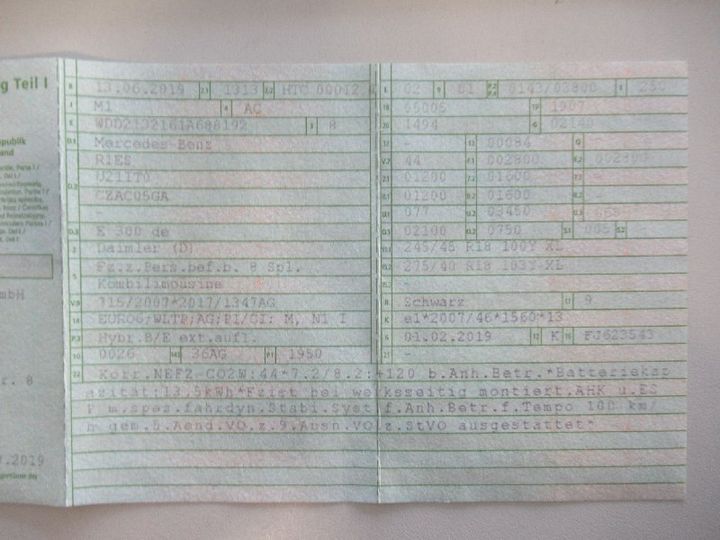 g Teil I
B 13.06.2019 2.1 1313 2.2 HTC 00012
J M1 4 AC
E WDD2132161A688192 3 8
D.1 Mercedes-Benz
R1ES
D.2 U2IIT0
CZAC05GA
-
D.3 E 300 de
2 Daimler (D)
5 Fz.z.Pers.bef.b. 8 Spl.
Kombilimousine
V.9 715/2007*2017/1347AG
14 EURO6;WLTP;AG;PI/CI: M, N1 I
P.3 Hybr.B/E ext.aufl.
10 0026 14.1 36AG P.1 1950
L 02 9 01 0143/03800 T 250
18 19 1907
20 1494 G
12 - 13 00084 Q
V.7 44 F.1 002800 F.2 002800
7.1 01200 7.2 01600 7.3 -
8.1 01200 8.2 01600 8.3 -
U.1 077 U.2 03450 U.3
O.1 02100 O.2 0750 S.1 005 S.2 -
15.1 245/45 R18 100Y XL
15.2 275/40 R18 103Y XL
15.3 -
R Schwarz 11 9
K e1*2007/46*1560*13
6 01.02.2019 17 K 16 FJ623543
21 -
22 Korr.NEFZ-CO2W:44*7.2/8.2:+120 b.Anh.Betr.*Batteriekap
azität:13,5kWh*Fzist bei werksseitig montiert.AHK u.ES
P m.spez.fahrdyn.Stabi.Syst f.Anh.Betr.f.Tempo 100 km/
h gem.6.Aend.VO.z.9.Ausn.VO.z.StVO ausgestattet*
mbH
r. 8
.2019